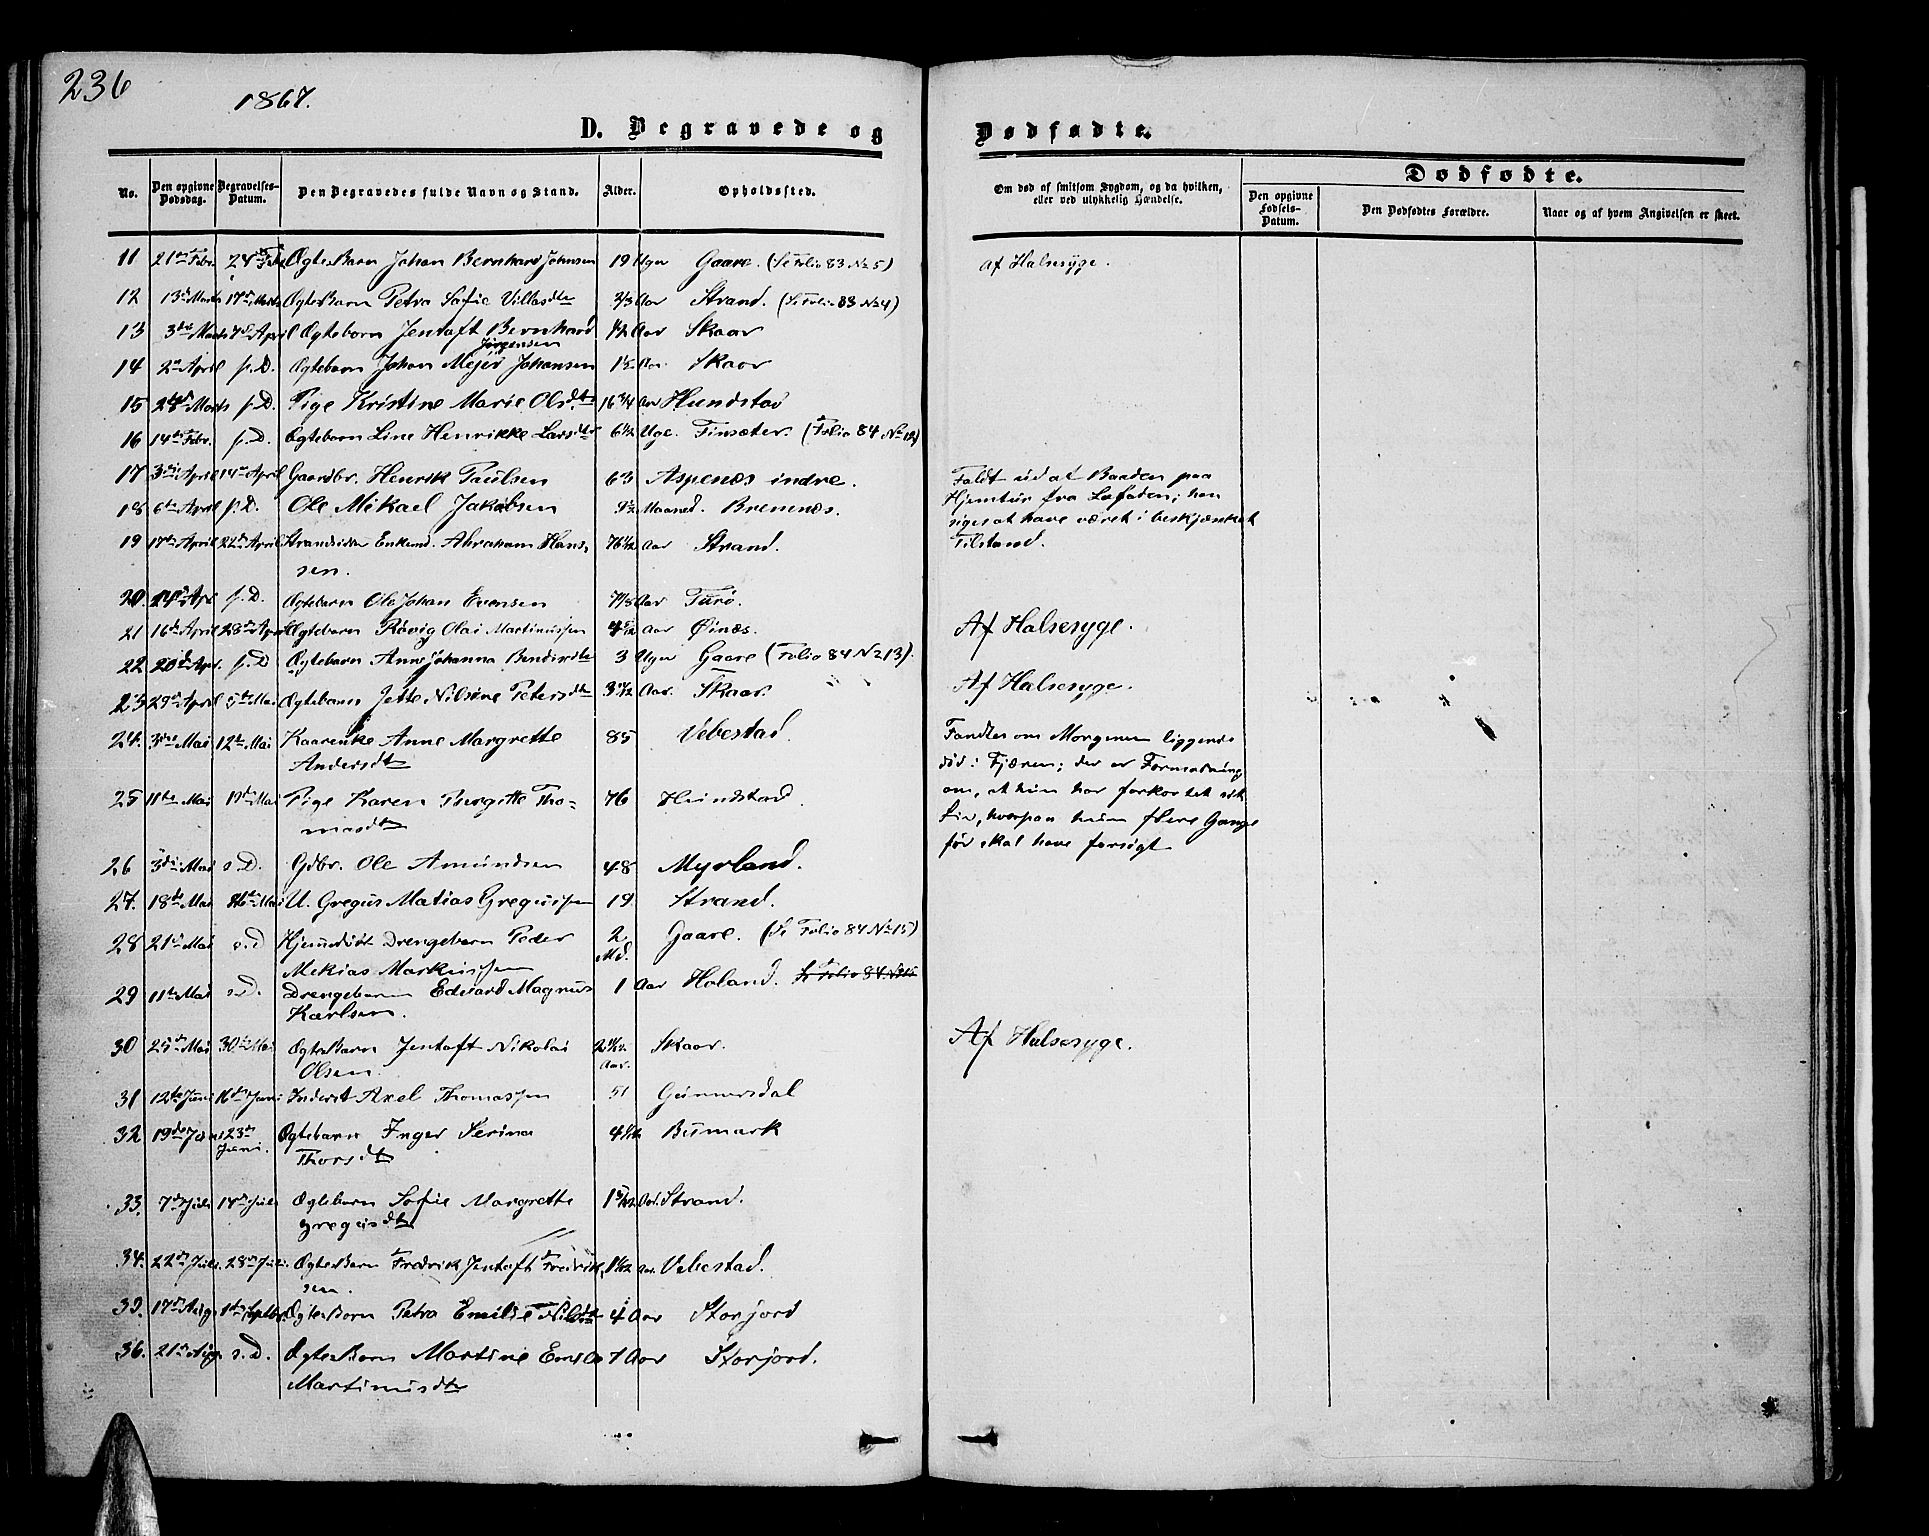 236
1867.
D. Begravede og
Dødfødte.
No.
Den opgivne Dødsdag.
Begravelses-Datum.
Den Begravedes fulde Navn og Stand.
Alder.
Opholdssted.
Om død af smitsom Sygdom, og da hvilken,
eller ved ulykkelig Hændelse.
Dødfødte.
Den opgivne Fødsels-Datum.
Den Dødfødtes Forældre.
Naar og af hvem Angivelsen er skeet.
11 21de Febr. 24de Febr Ægte Barn Johan Bernhard Johnsen 19 Uger Gaare. (Se Folio 83 No 5) Af Halssyge.
12 13de Marts 17de Marts Ægte Barn Petra Sofie Villasdtr 3/3 Aar Strand. (Se Folio 83 No 4)
13 3die Marts 7de April Ægtebarn Jentoft Bernhard 1/2 Aar Skaar
Jørgensen
14 2den April s. D. Ægtebarn Johan Mejer Johansen Aar. Skaar
15 Marts s. D. Pige Kristine Marie Olsdtr 16 3/4 Aar Hundstad
16 14de Febr. s. D. Ægtebarn Line Henrikke Larsdtr 6 1/2 Uge. Finsæter. (Folio 84 No 12)
17 3die April 14de April Gaardbr. Henrik Paulsen 63 Aspenæs indre. Faldt ud af Baaden paa
18 6te April s. D. Ole Mikael Jakobsen Maaned. Bremnæs. Hjemtur fra Lofoden; han
siges at have været i beskjænket
19 17de April 22de April Strandsidder Enkemd. Abraham Hans- 76 1/2 Aar Strand. Tilstand.
sen.
20. 24de Apr s. D. Ægtebarn Ole Johan Evensen Aar Turø.
21 16de April 28de April Ægtebarn Røvig Olai Martinussen 4 Aar Øinæs. Af Halsesyge.
22. 20de Apr. s. D Ægtebarn Anne Johanna Bendixdtr 3 Uger Gaare (Folio 84 No 13).
23 29de April 5te Mai Ægtebarn Jette Nilsine Petersdtr 3 Aar. Skaar. Af Halsesyge.
24. 3die Mai 12te Mai Kaarenke Anne Margrette 85 Vebestad. Fandtes om Morgenen liggende
Andersdtr død i Fjæren; der er Formodning
25 11te Mai 19de Mai Pige Karen Bergitte Tho- 76 Hundstad. om, at hun har forkortet sit
masdtr Liv, hvorpaa hun flere Gange
før skal have forsøgt
26 3die Mai s. D. Gdbr. Ole Amundsen 48 Myrland.
27. 18de Mai 26te Mai U. Gregus Matias Gregussen 19. Strand.
28 21de Mai s. D Hjemmedøbt Drengebarn Peder 2 Md. Gaare. (Se Folio 84 No 15)
Mekias Markussen
29 11te Mai s. D. Drengebarn Edvard Magnus 1 Aar Holand. Se Folio 84 No 15
Karlsen.
30 25de Mai 30te Mai Ægte Barn Jentoft Nikolai 2 Aar. Skaar. Af Halsesyge.
Olsen.
31 12te Juni 16de Juni Inderst Axel Thomassen 51 Gunnersdal
32. 19de Juni 23de Juni. Ægtebarn Inger Serina 4 1/12 Bumark
Thorsdtr
33. 7de Juli 14de Juli Ægtebarn Sofie Margrette 1 Aar. Strand.
Gregusdtr
34. 22de Juli 28de Juli. Ægte Barn Fredrik Jentoft Fredrik- 1 Aar. Vebestad.
sen.
35. 17de Aug 1ste Septbr. Ægte Barn Petra Emilie Nilsdtr 4 Aar Storjord
36. 21de Aug s. D. Ægte Barn Martine Emilie 7 Aar Storjord.
Martinusdtr